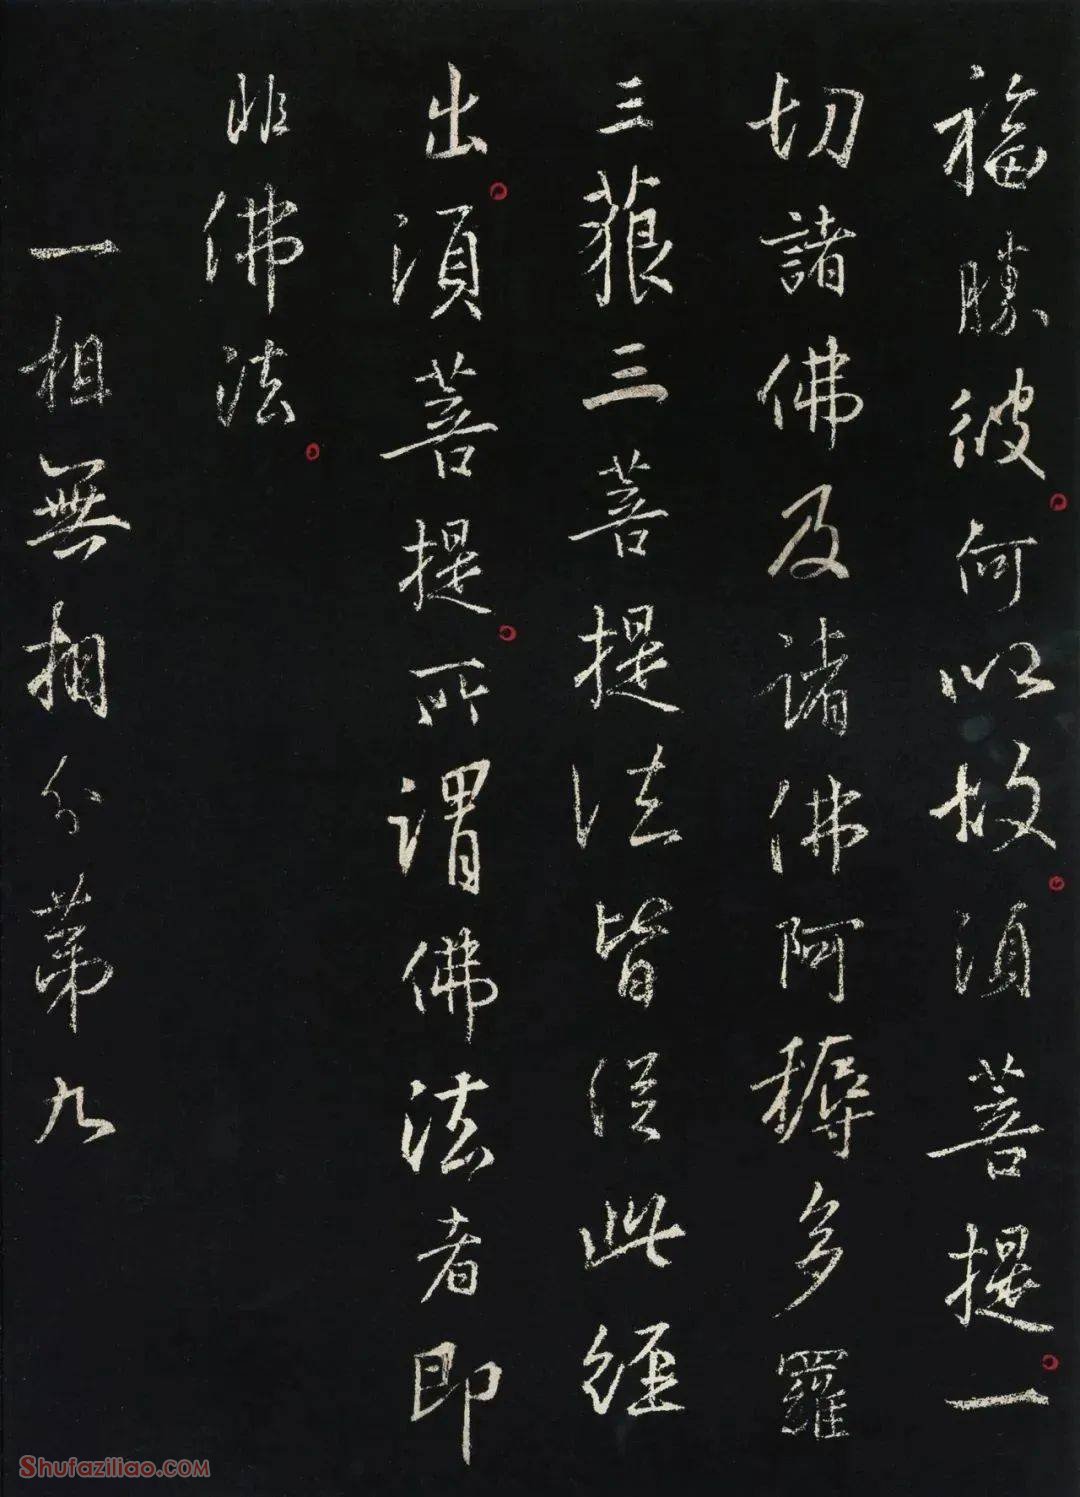 福勝彼何以故須菩提一
切諸佛及諸佛阿耨多羅
三藐三菩提法皆從此經
出須菩提所謂佛法者即
非佛法
一相無相分第九
Shufaziliao.COM